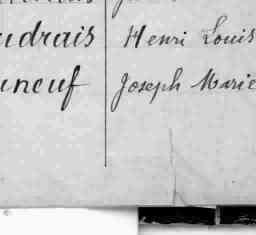 udrais Henri Louis
uneuf Joseph Marie